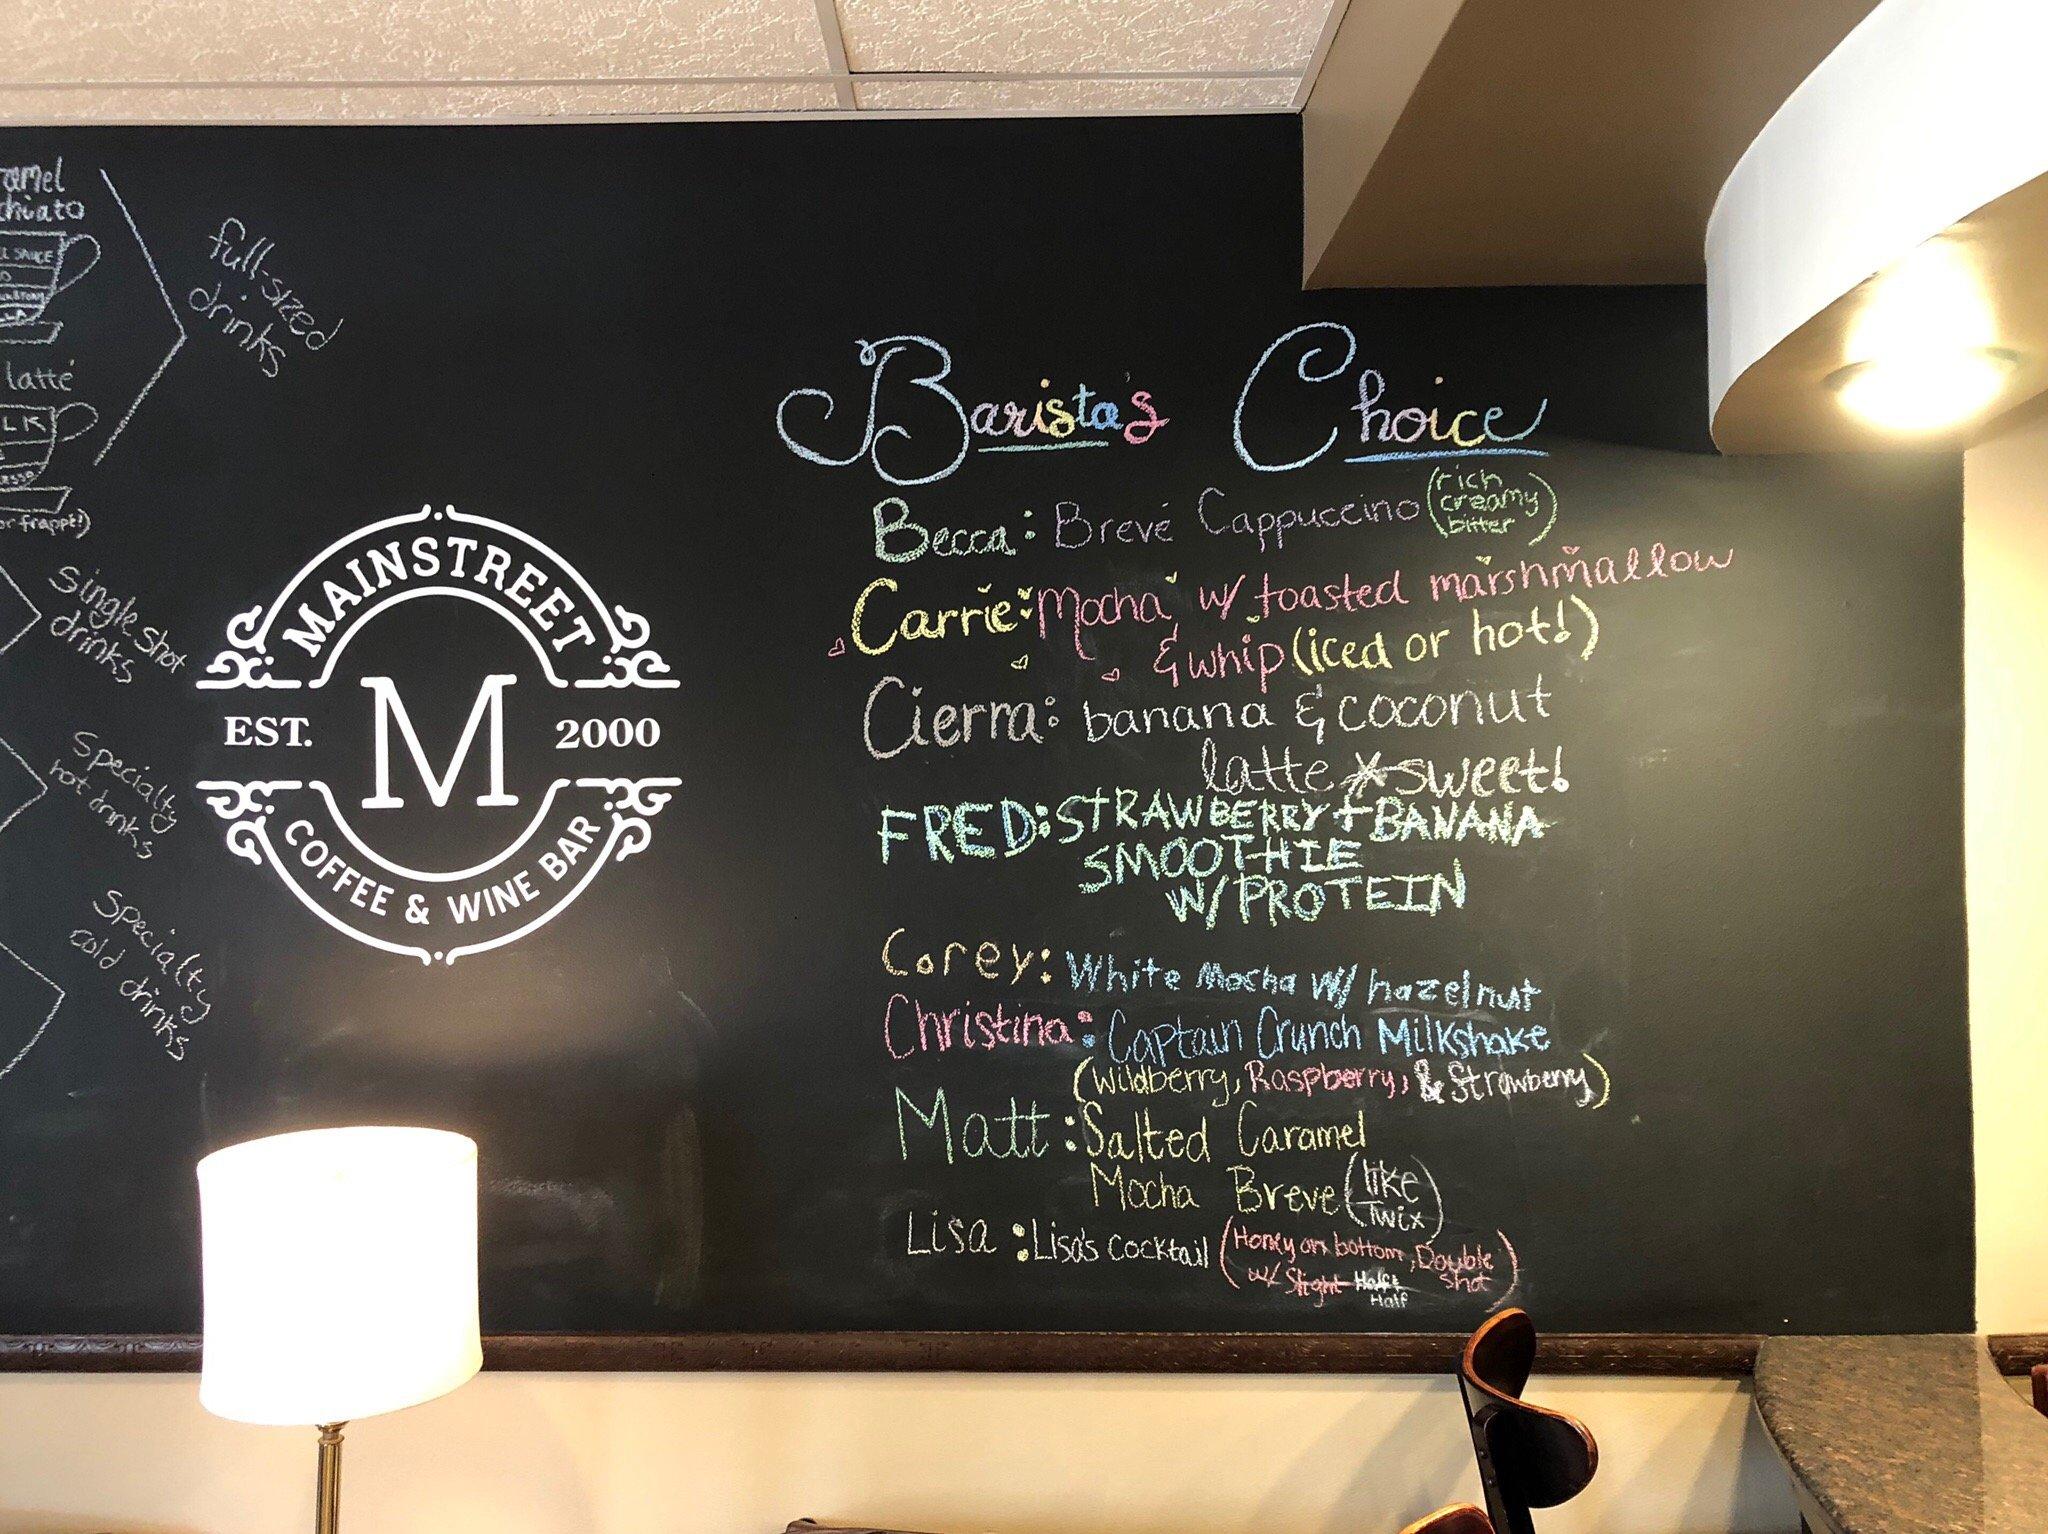 full-sized
drinks
latté
or frappé!)
Single shot
drinks
Specialty
hot drinks
Specialty
cold drinks
MAINSTREET
EST. M 2000
COFFEE & WINE BAR
Barista's Choice
Becca: Brevé Cappuccino (rich
creamy
bitter)
Carrie: Mocha w/ toasted marshmallow
& whip (iced or hot!)
Cierra: banana & coconut
latte *sweet!
FRED: STRAWBERRY + BANANA
SMOOTHIE
W/ PROTEIN
Corey: White Mocha w/ hazelnut
Christina: Captain Crunch Milkshake
(Wildberry, Raspberry, & Strawberry)
Matt: Salted Caramel
Mocha Breve (like
Twix)
Lisa: Lisa's cocktail (Honey on bottom, Double
w/ Slight Half & shot)
Half